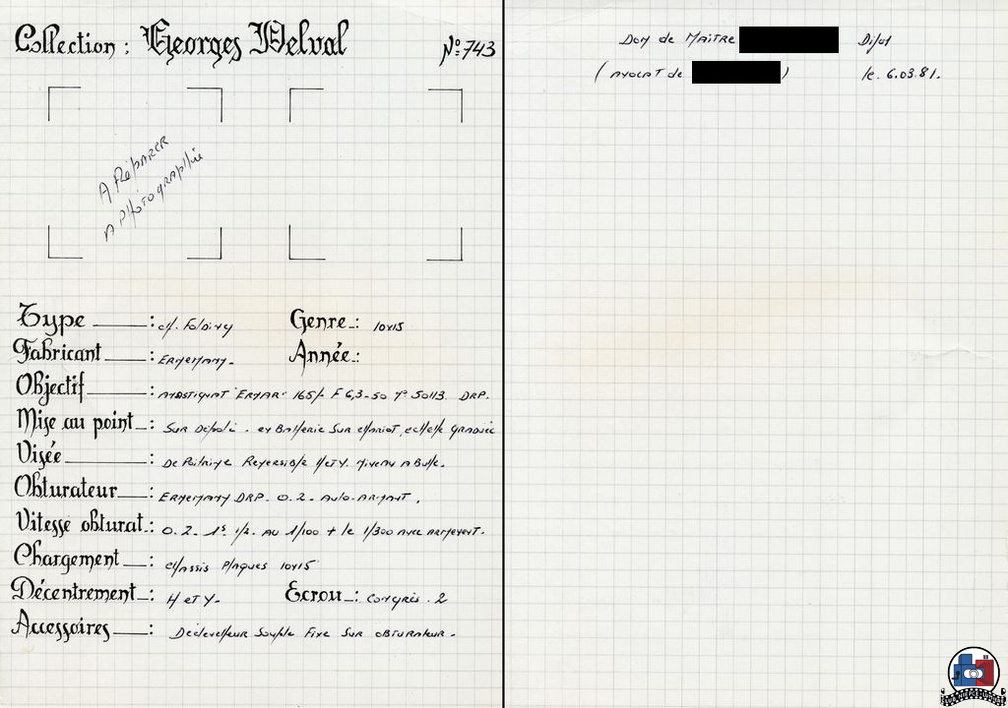 Collection : Georges Delval
N° 743
A Réparer
A Photographié
Type : ch. Folding Genre : 10x15
Fabricant : Ernemann. Année :
Objectif : Anastigmat "Ernar" 165/- F 6,3-50 N° 50113 DRP.
Mise au point : Sur Dépoli. en Batterie Sur chariot, échelle graduée
Visée : De Poitrine Reversible H et V. Niveau A Bulle.
Obturateur : Ernemann DRP. O. Z. Auto-Armant.
Vitesse obturat. : O. Z. 1s 1/2. AU 1/100 + le 1/300 avec armement.
Chargement : chassis Plaques 10x15
Décentrement : H et V. Ecrou : Congrès. 2
Accessoires : Déclencheur Souple Fixe Sur obturateur.
Don de Maitre
(avocat de )
le. 6.03.81.